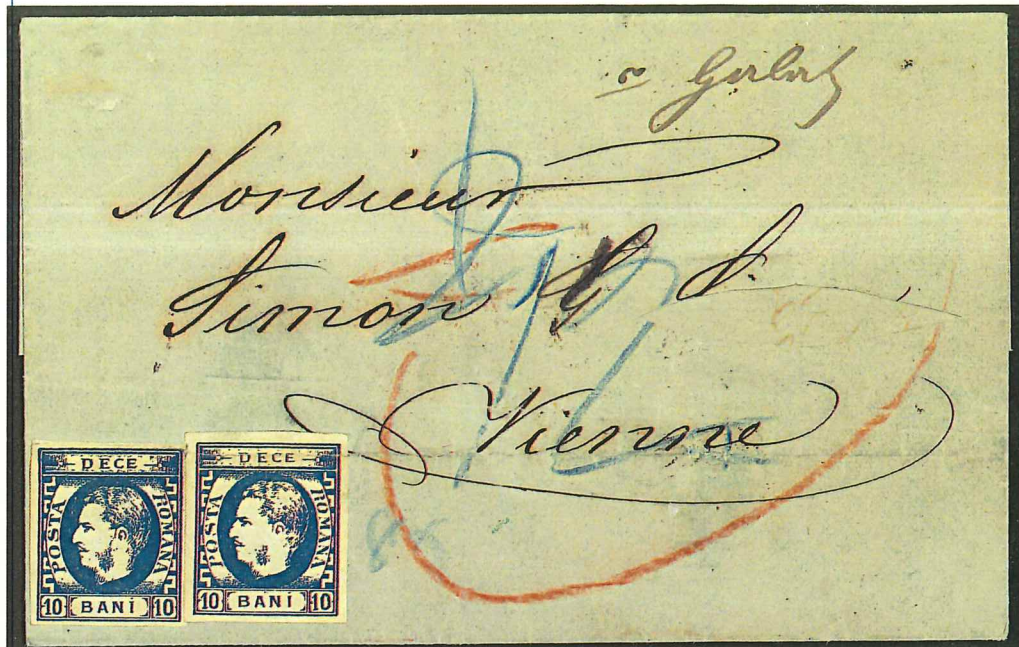 Galatz
Monsieur
Simon G. S.
Vienne
DECE
POSTA ROMANA
10 BANI 10
DECE
POSTA ROMANA
10 BANI 10